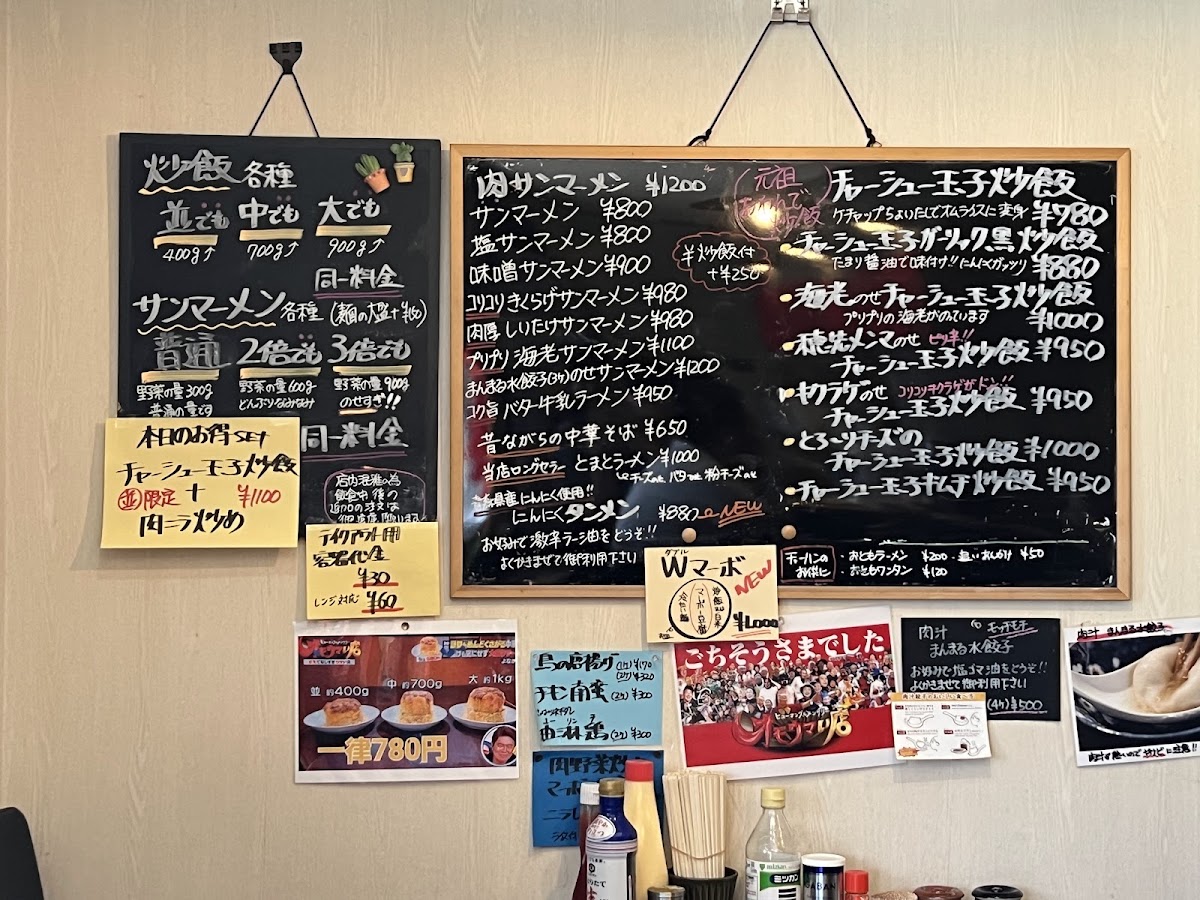 炒飯 各種
並でも 中でも 大でも
400g↑ 700g↑ 900g↑
同一料金
サンマーメン 各種
普通 2倍でも 3倍でも
野菜の量300g 野菜の量600g 野菜の量900g
普通の量です どんぶりなみなみ のせすぎ!!
同一料金
本日のお得SET
チャーシュー玉子炒飯
並限定 + ¥1100
肉ニラ炒め
テイクアウト用
容器代金
¥30
レンジ対応 ¥60
肉サンマーメン ¥1200
サンマーメン ¥800
塩サンマーメン ¥800
味噌サンマーメン ¥900
コリコリきくらげサンマーメン ¥980
肉厚しいたけサンマーメン ¥980
プリプリ海老サンマーメン ¥1100
まんまる水餃子(3ケ)のせサンマーメン ¥1200
コク旨バター牛乳ラーメン ¥950
昔ながらの中華そば ¥650
当店ロングセラー とまとラーメン ¥1000
にんにく使用!!
にんにくタンメン ¥880 NEW
お好みで激辛ラー油をどうぞ!!
よくかきまぜて御利用下さい
元祖
炒飯
半炒飯付
+¥250
チャーシュー玉子炒飯
ケチャップちょいたしでオムライスに変身 ¥780
チャーシュー玉子ガーリック黒炒飯
たまり醤油で味付け!!にんにくガッツリ ¥880
海老のせチャーシュー玉子炒飯
プリプリの海老がのっています ¥1000
穂先メンマのせ ピリ辛!!
チャーシュー玉子炒飯 ¥950
ヤクラゲのせ
チャーシュー玉子炒飯 ¥950
とろ〜りチーズの
チャーシュー玉子炒飯 ¥1000
チャーシュー玉子キムチ炒飯 ¥950
チャーハンの
お供に
・おともラーメン ¥200
¥50
・おともワンタン ¥120
ダブル
Wマーボ
NEW
¥1,000
並 約400g 中 約700g 大 約1kg
一律780円
鳥の唐揚げ (1ケ)¥170
(2ケ)¥320
(2ケ) ¥300
(2ケ) ¥300
肉野菜炒
ごちそうさまでした
オモウマい店
肉汁 モッチモチ
まんまる水餃子
お好みで塩ゴマ油をどうぞ!!
よくかきまぜて御利用下さい
(4ケ) ¥500
肉汁 まんまる水餃子
ミツカン
mizkan